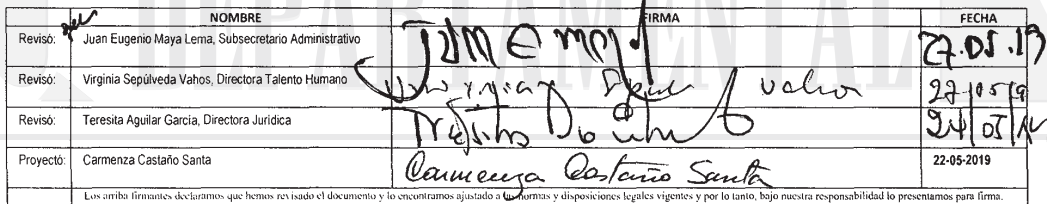 DEPARTAMENTAL
NOMBRE FIRMA FECHA
Revisó: Juan Eugenio Maya Lema, Subsecretario Administrativo 27.05.19
Revisó: Virginia Sepúlveda Vahos, Directora Talento Humano Virginia Vahos 27/05/19
Revisó: Teresita Aguilar Garcia, Directora Jurídica
Proyectó: Carmenza Castaño Santa Carmenza Castaño Santa 22-05-2019
Los arriba firmantes declaramos que hemos revisado el documento y lo encontramos ajustado a las normas y disposiciones legales vigentes y por lo tanto, bajo nuestra responsabilidad lo presentamos para firma.